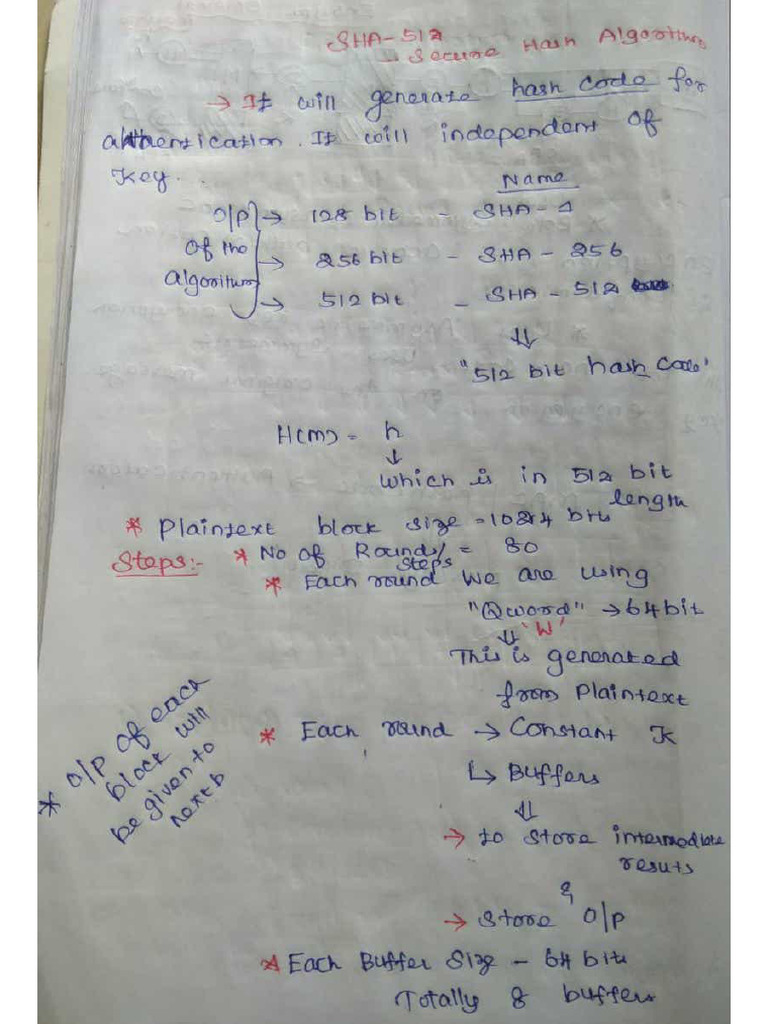 SHA-512
→ Secure Hash Algorithm
→ It will generate hash code for
authentication. It will independent of
Key.
Name
O/P → 128 bit - SHA-1
of the → 256 bit - SHA - 256
algorithm → 512 bit - SHA - 512
⇓
"512 bit hash code"
H(m) = h
↓
which is in 512 bit
length
* Plaintext block size = 1024 bits
Steps:- * No of Rounds/ = 80
Steps
* Each round we are using
"Qword" → 64 bit
⇓ 'W'
This is generated
from Plaintext
* Each round → Constant K
↳ Buffers
⇓
→ to store intermediate
resuts
&
→ Store O/P
* Each Buffer Size - 64 bits
Totally 8 buffers
* O/P of each
block will
be given to
next b